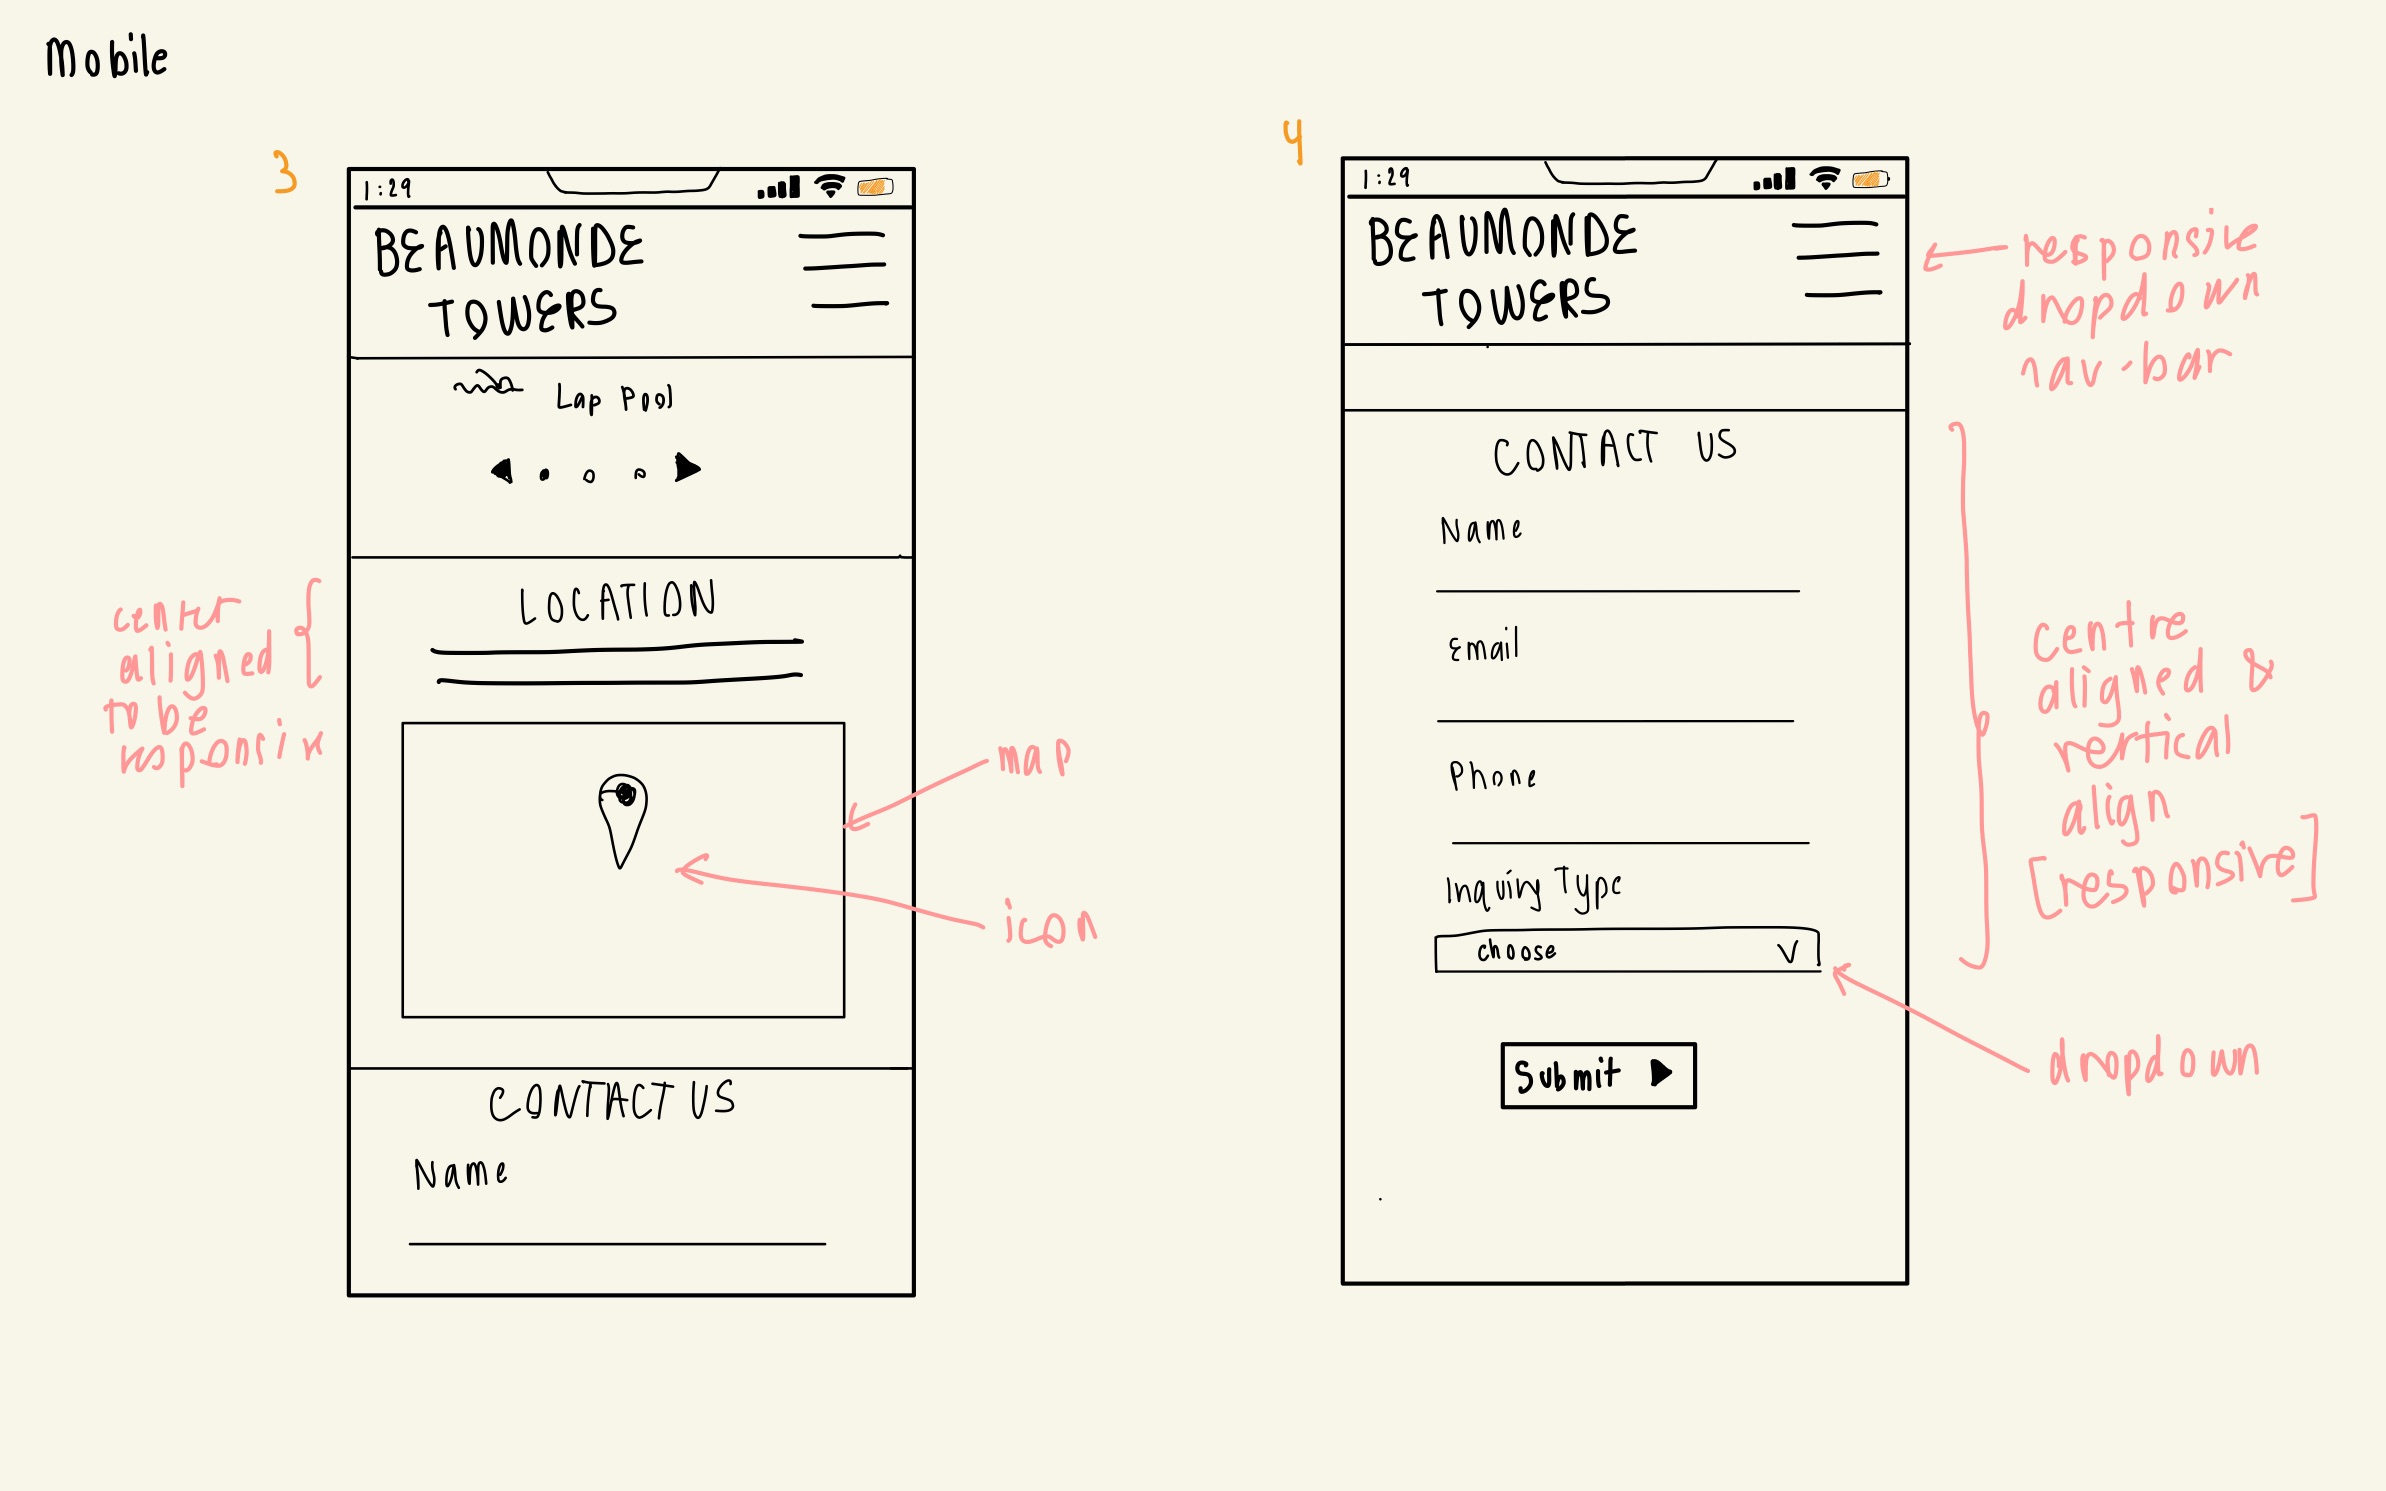 Mobile
3
1:29
BEAUMONDE
TOWERS
Lap Pool
LOCATION
center
aligned
to be
map
icon
CONTACT US
Name
4
1:29
BEAUMONDE
TOWERS
responsive
dropdown
nav-bar
CONTACT US
Name
Email
Phone
Inquiry Type
choose
Submit
Centre
aligned &
vertical
align
[responsive]
dropdown